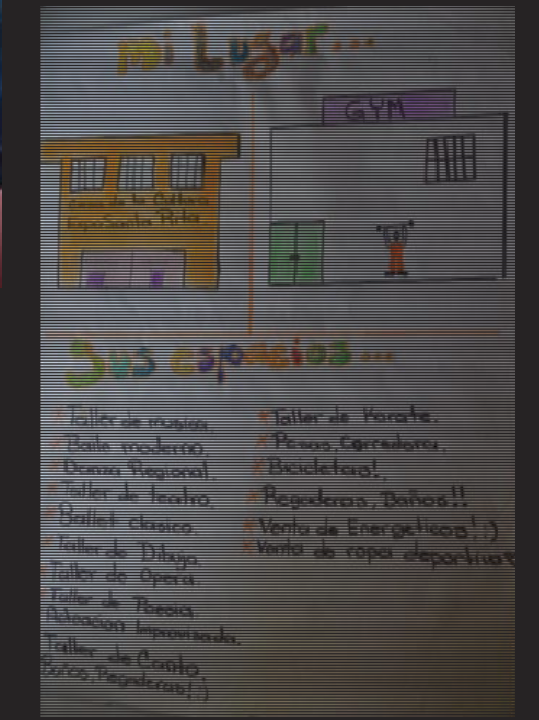 mi Lugar...
GYM
Casa de la Cultura
ExpoSanta Rita
Sus espacios...
*Taller de musica.
*Baile moderno.
*Danza Regional.
*Taller de teatro.
*Ballet clasico.
*Taller de Dibujo.
*Taller de Opera.
*Taller de Poesia
Actuacion Improvisada.
Taller de Canto.
Baños, Regaderas!:)
*Taller de Karate.
*Pesas, Corredora.
*Bicicletas!.
*Regaderas, Baños!!
*Venta de Energeticos!:)
*Venta de ropa deportiva